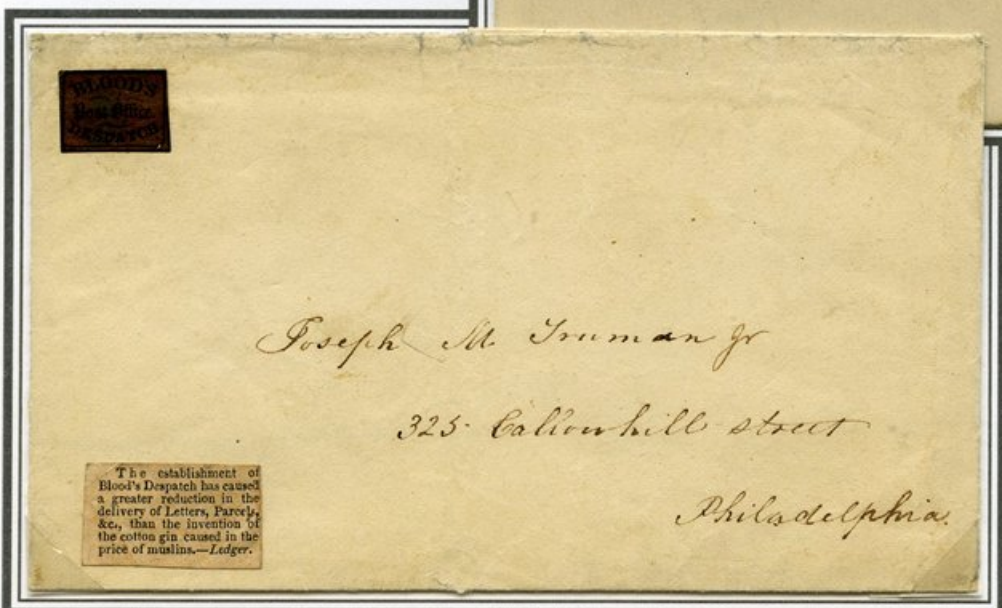 BLOOD'S
Post Office
DESPATCH
Joseph M Truman Jr
325 Callowhill street
Philadelphia.
The establishment of
Blood's Despatch has caused
a greater reduction in the
delivery of Letters, Parcels,
&c., than the invention of
the cotton gin caused in the
price of muslins.—Ledger.